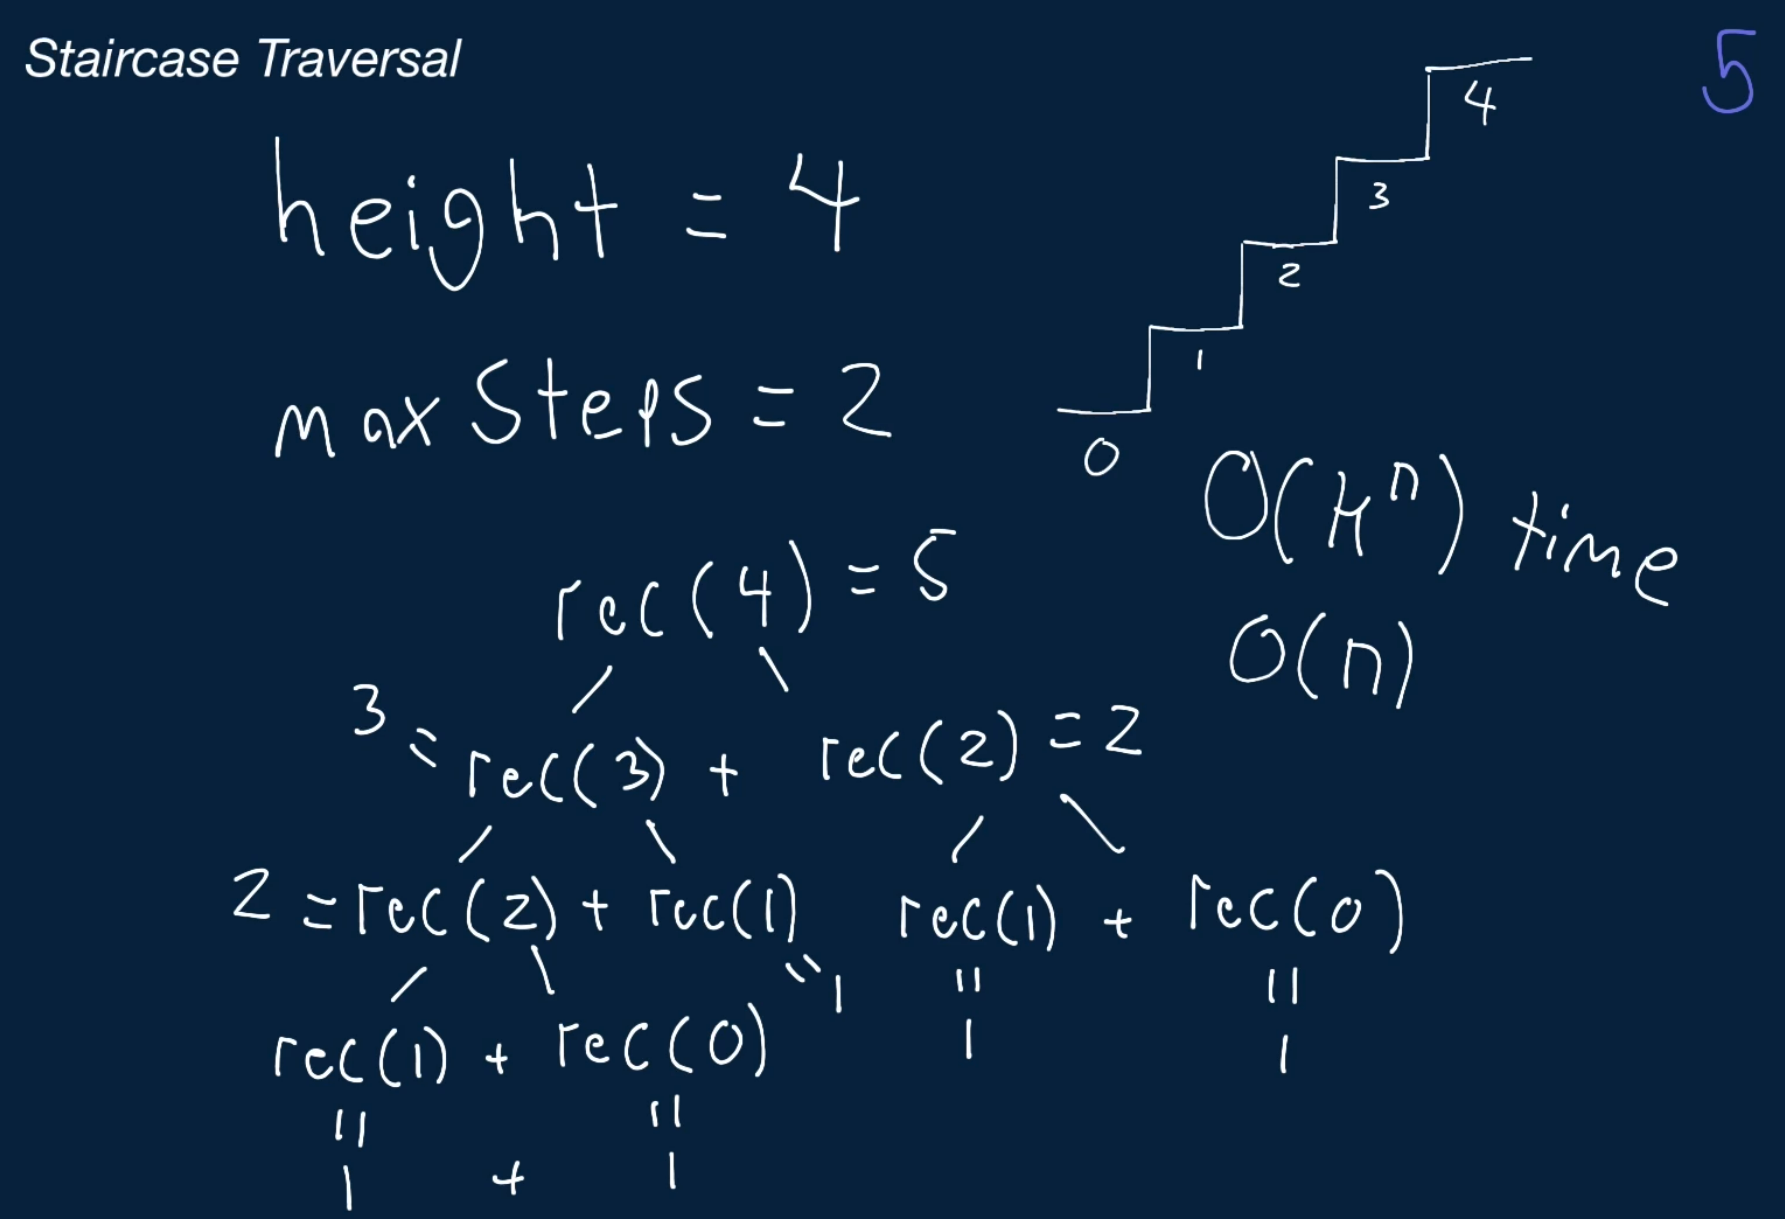 Staircase Traversal
5
height = 4
4
3
2
1
0
maxSteps = 2
O(k^n) time
O(n)
rec(4) = 5
3 = rec(3) + rec(2) = 2
2 = rec(2) + rec(1) rec(1) + rec(0)
" 1 || ||
rec(1) + rec(0) 1 1
|| ||
1 + 1